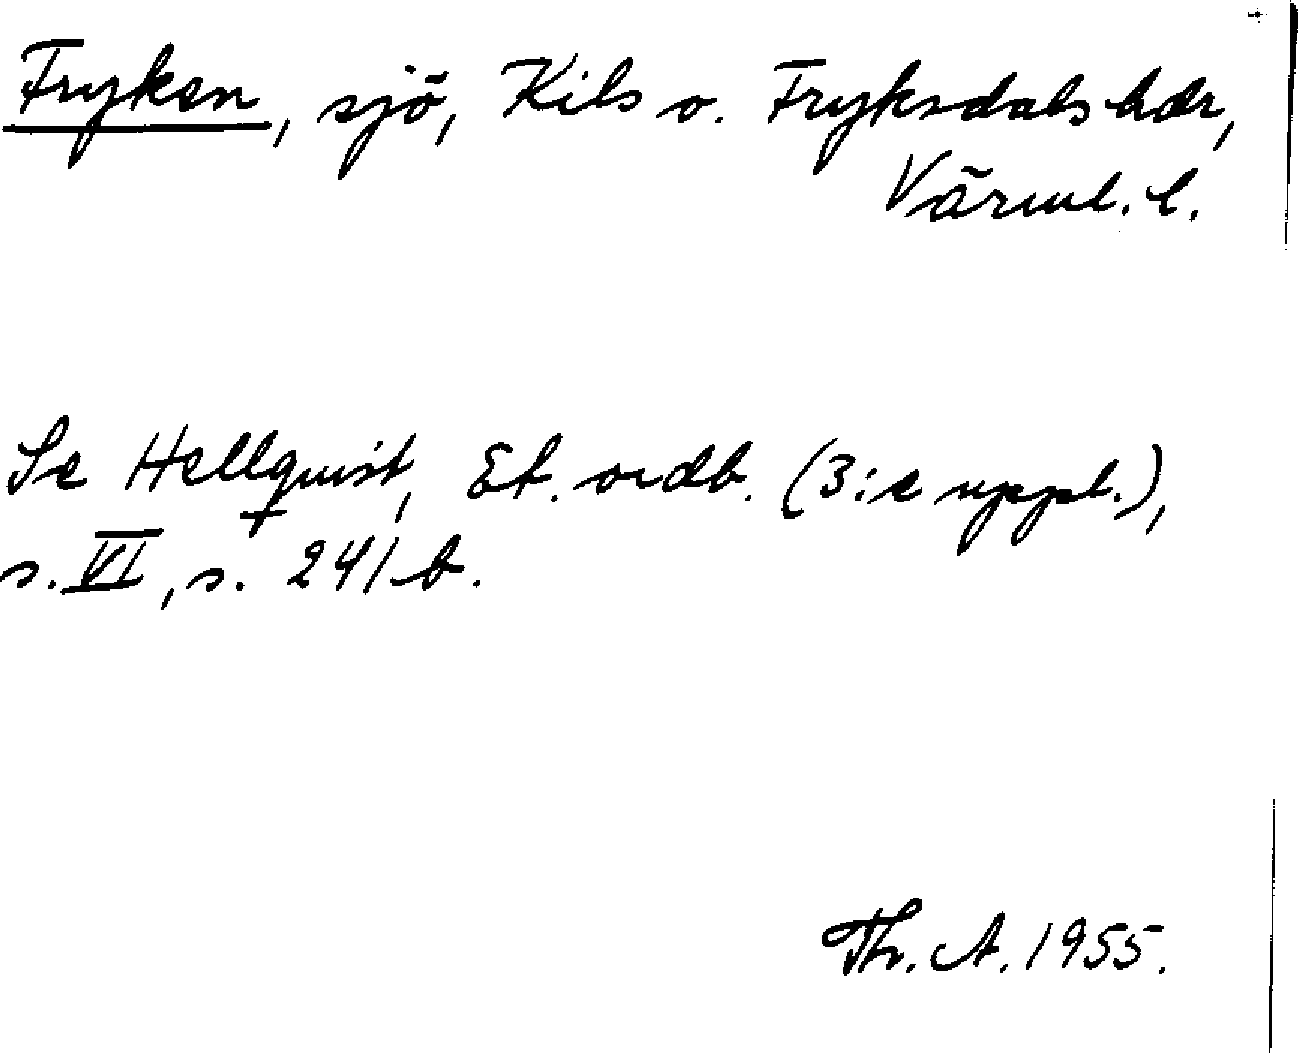 Fryken, sjö, Kils o. Fryksdals hdr,
Värml. l.
Se Hellquist, Et. ordb. (3:e uppl.),
s. VI, s. 241 b.
Th. A. 1955.